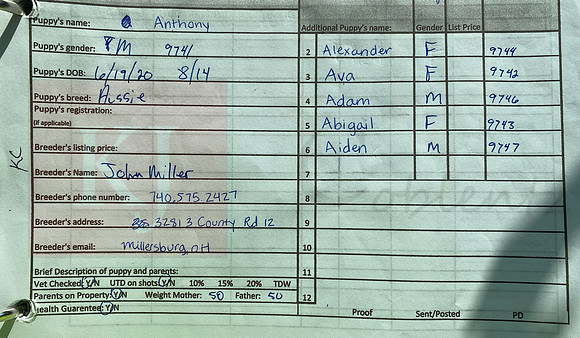 Puppy's name: Anthony
Puppy's gender: M 9741
Puppy's DOB: 6/19/20 8/14
Puppy's breed: Aussie
Puppy's registration:
(if applicable)
Breeder's listing price:
Breeder's Name: John Miller
Breeder's phone number: 740.575.2427
Breeder's address: 32813 County Rd 12
Breeder's email: Millersburg, OH
Brief Description of puppy and parents:
Vet Checked Y/N UTD on shots Y/N 10% 15% 20% TDW
Parents on Property: Y/N Weight Mother: 50 Father: 50
Health Guarentee: Y/N
KC
Additional Puppy's name: Gender List Price
2 Alexander F 9744
3 Ava F 9742
4 Adam M 9746
5 Abigail F 9743
6 Aiden M 9747
7
8
9
10
11
12
Proof Sent/Posted PD